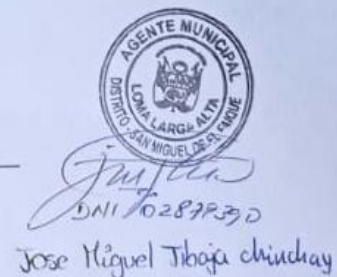 AGENTE MUNICIPAL
LOMA LARGA ALTA
DISTRITO SAN MIGUEL DE EL FAIQUE
DNI 02879390
Jose Miguel Tibaja chinchay